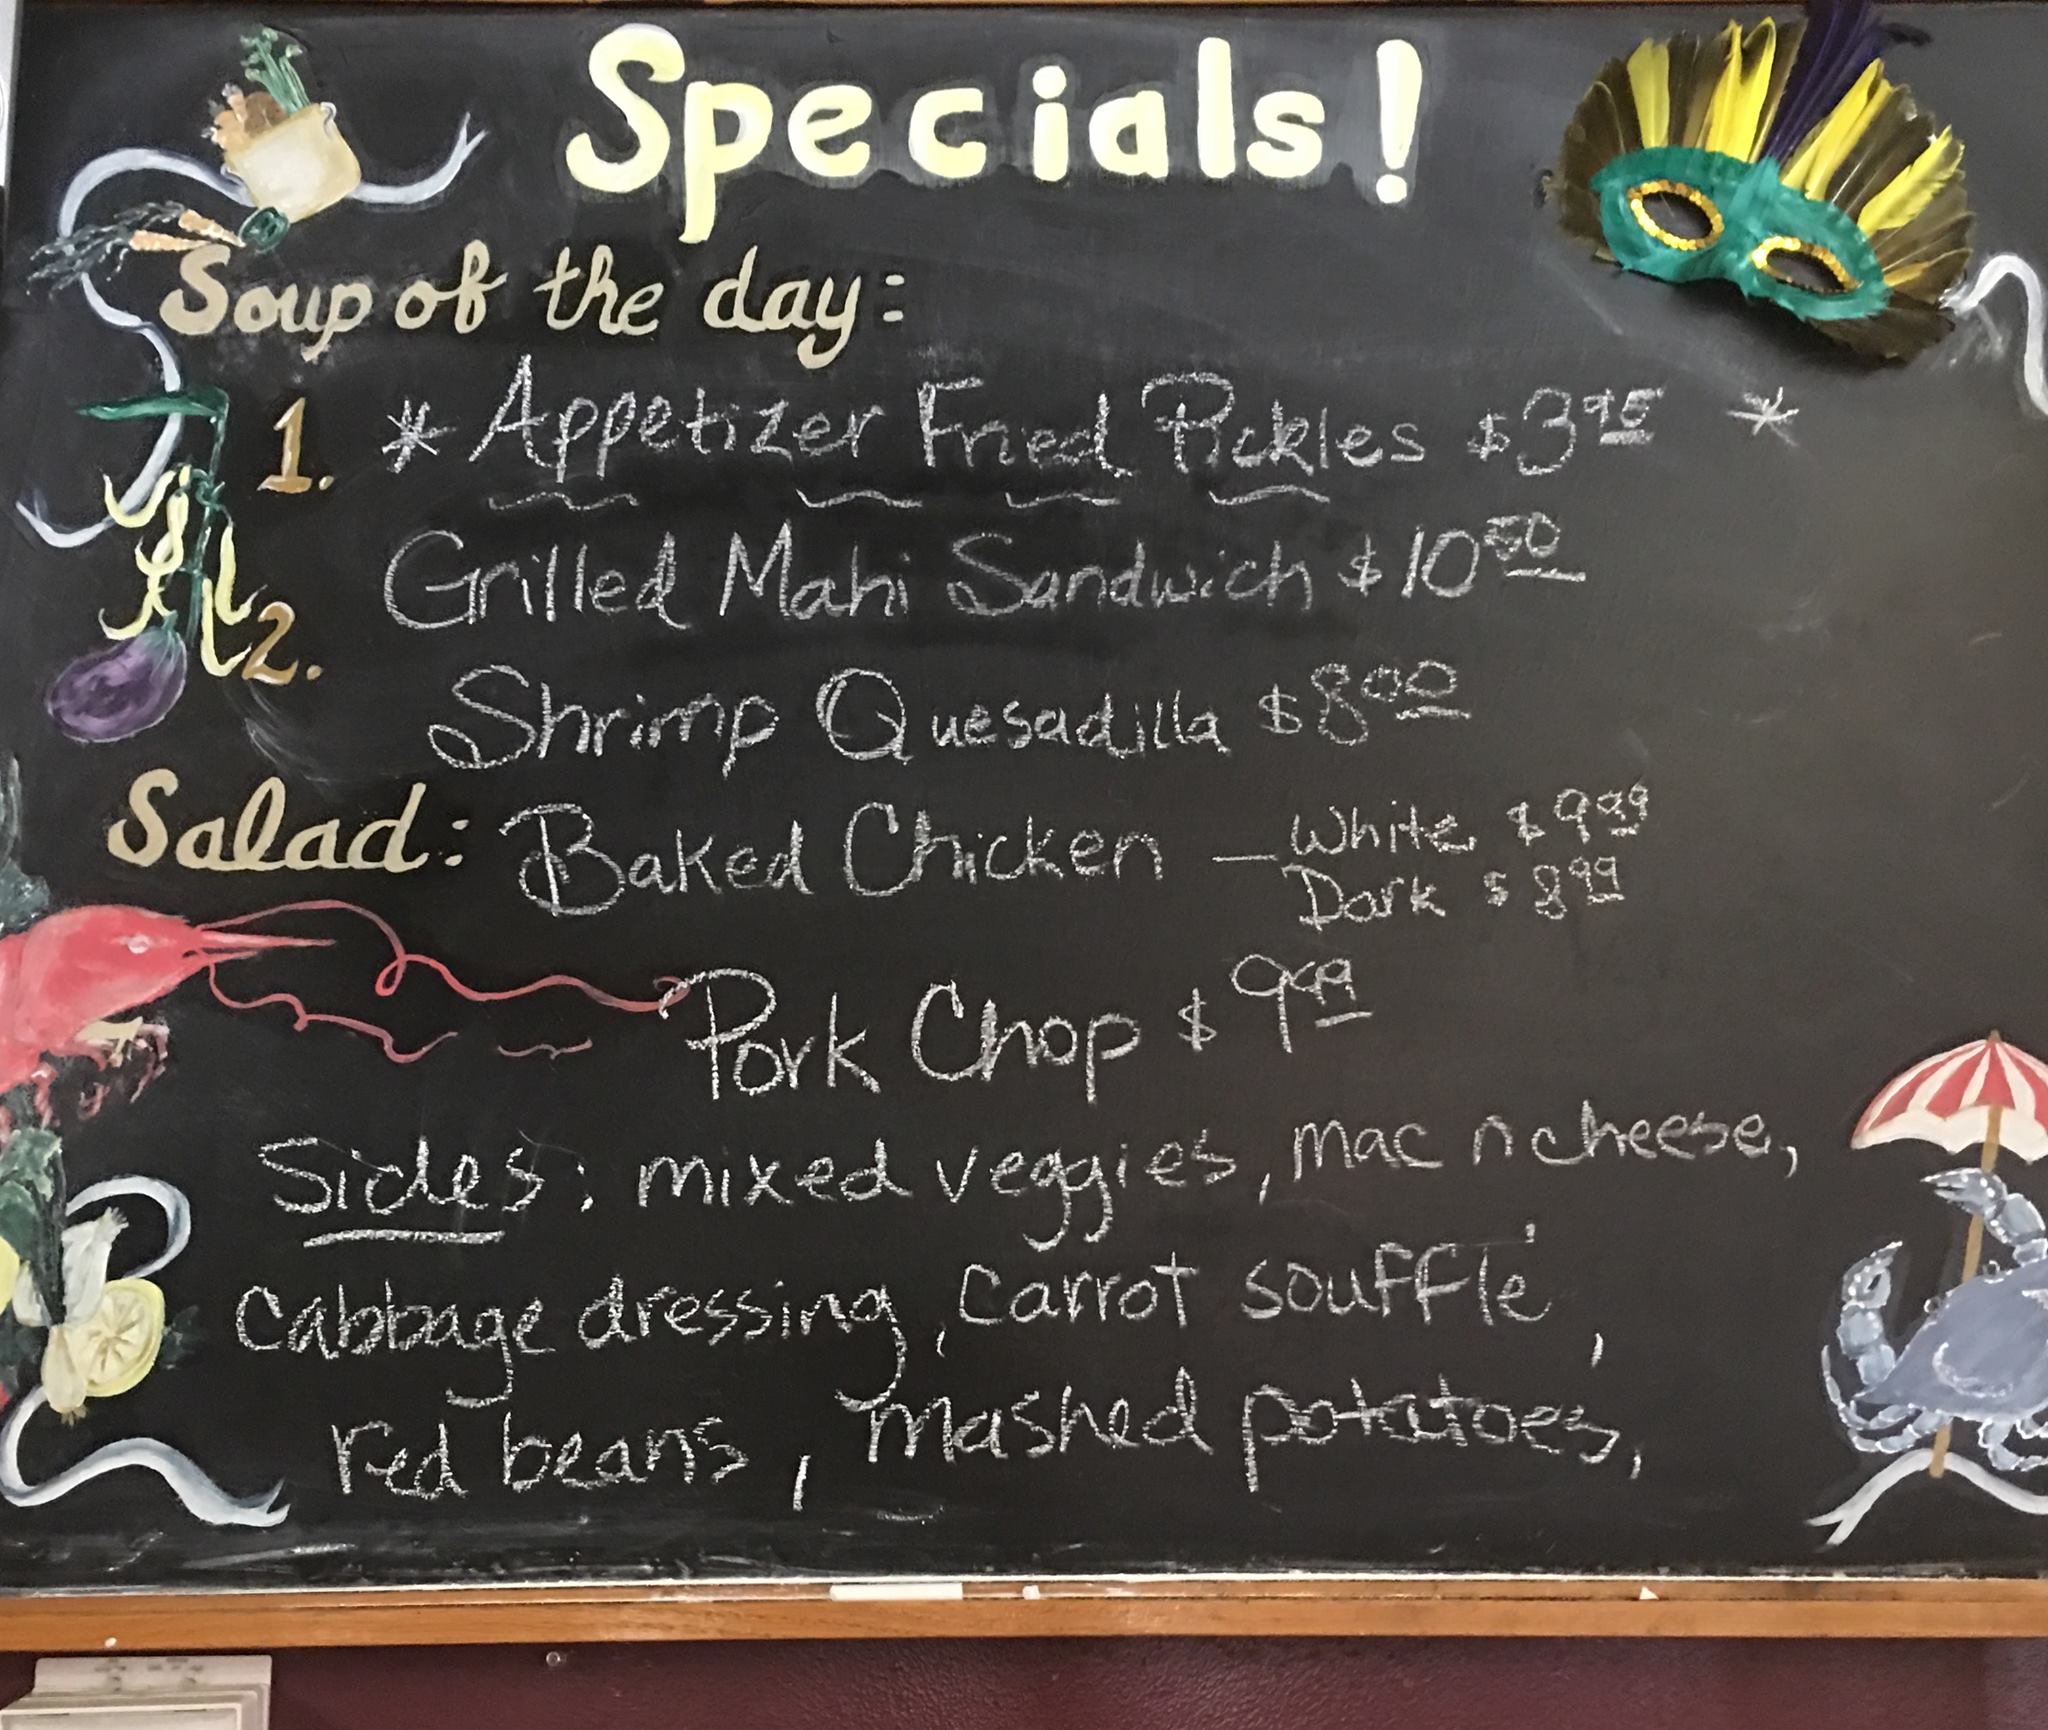 Specials!
Soup of the day:
1. * Appetizer Fried Pickles $3.95 *
Grilled Mahi Sandwich $10.50
2.
Shrimp Quesadilla $8.00
Salad: Baked Chicken — White $9.99
Dark $8.99
Pork Chop $9.99
Sides: mixed veggies, mac n cheese,
cabbage dressing, carrot soufflé,
red beans, mashed potatoes,